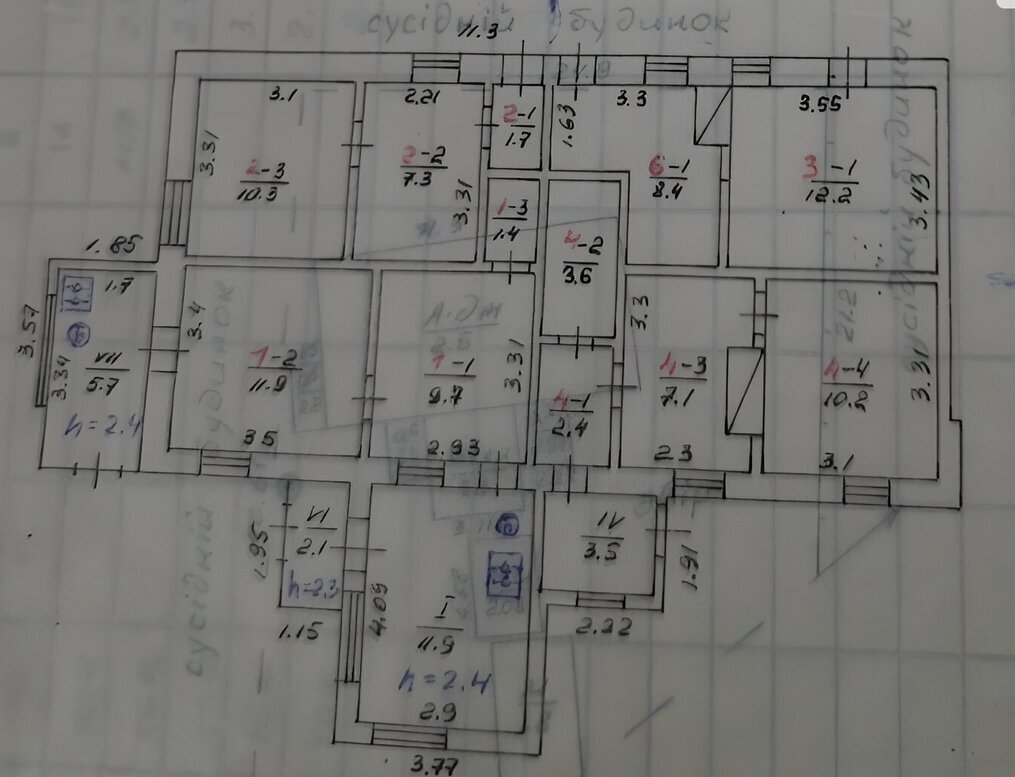 сусідній будинок
11.3
3.1
2.21
3.3
3.55
2-1
1.7
1.63
3.31
2-3
10.3
2-2
7.3
3.31
6-1
8.4
3-1
12.2
3.43
сусідній будинок
1-3
1.4
4-2
3.6
1.85
1.7
3.57
3.34
VII
5.7
h=2.4
3.4
1-2
11.9
3.5
1-1
9.7
3.31
2.93
4-1
2.4
3.3
4-3
7.1
2.3
21.2
4-4
10.2
3.31
3.1
сусідній будинок
VI
2.1
h=2.3
1.95
1.15
4.09
I
11.9
h=2.4
2.9
3.77
IV
3.5
1.91
2.22